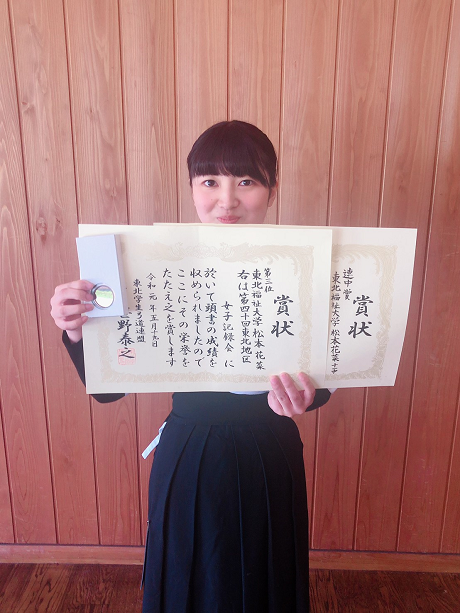 賞状
第三位
東北福祉大学 松本花菜
右は第四十回東北地区
女子記録会に
於いて頭書の成績を
収められましたので
ここにその栄誉を
たたえ之を賞します
令和元年五月十九日
東北学生弓道連盟
野泰之
賞状
連中賞
東北福祉大学 松本花菜